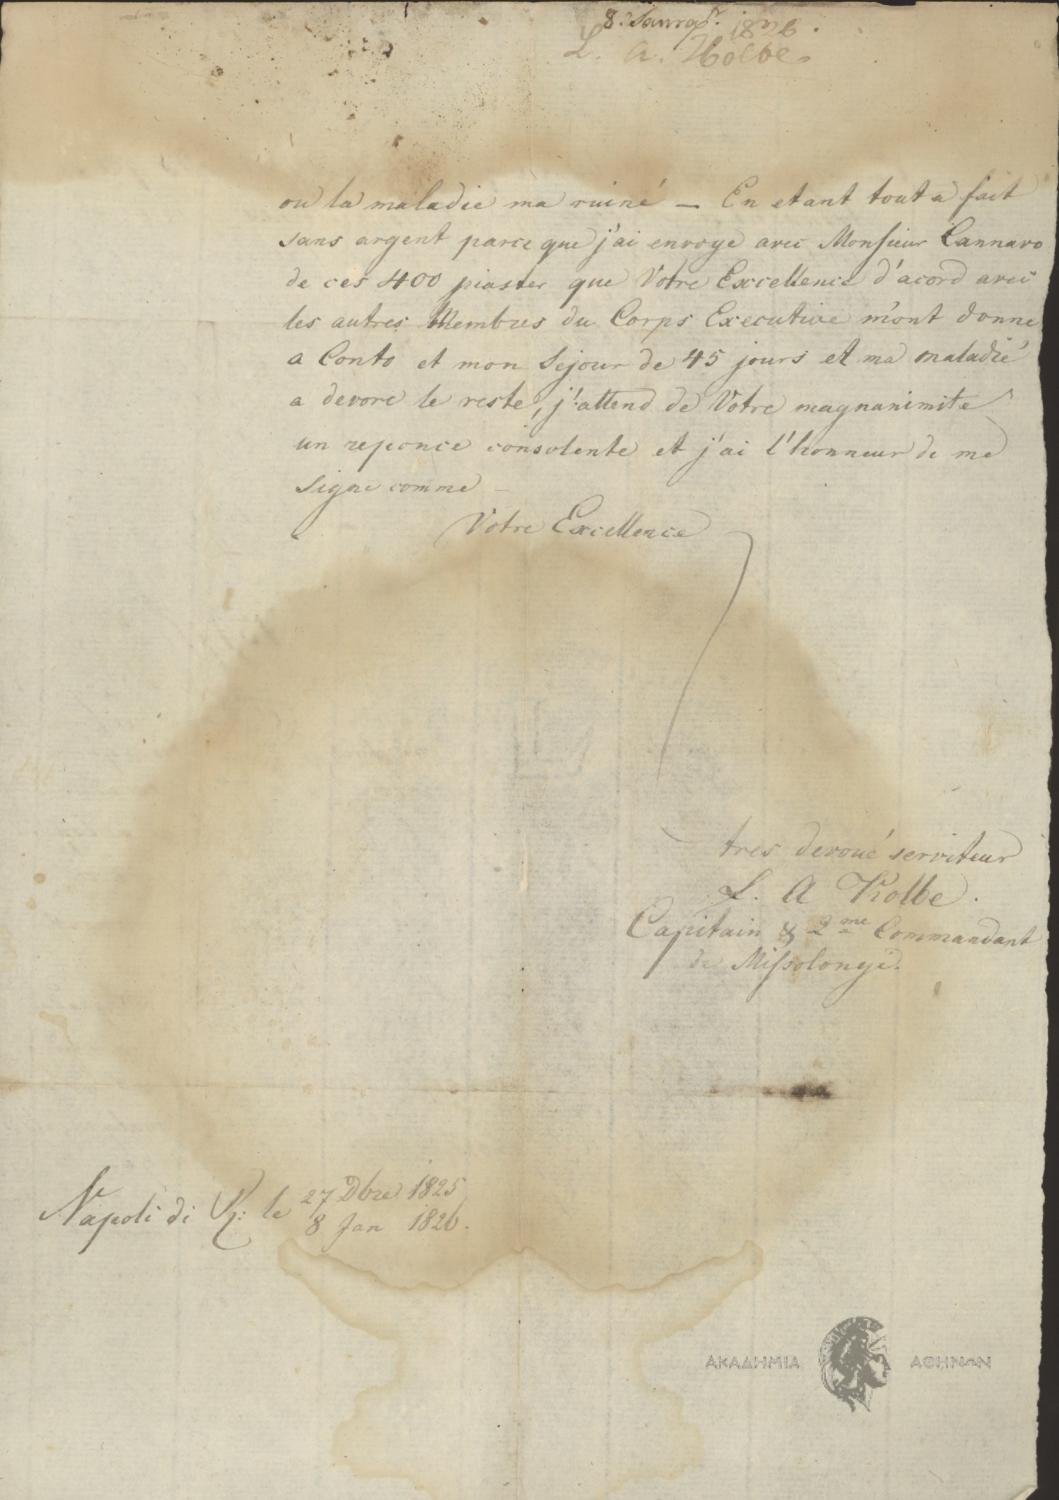 8. Janvr. 1826.
L. A. Kolbe.
ou la maladie ma ruiné — En etant tout a fait
sans argent parce que j'ai envoye avec Monsieur Cannaro
de ces 400 piaster que Votre Excellence d'acord avec
les autres Membres du Corps Executive m'ont donne
a Conto et mon Sejour de 45 jours et ma maladie
a devore le reste, j'attend de Votre magnanimite
un reponce consolente et j'ai l'honneur de me
signe comme
Votre Excellence
tres devoué serviteur
L. A Kolbe.
Capitain & 2me Commandant
de Missolongi.
Napoli di R: le 27 Dbre 1825
8 Jan 1826.
ΑΚΑΔΗΜΙΑ ΑΘΗΝΩΝ